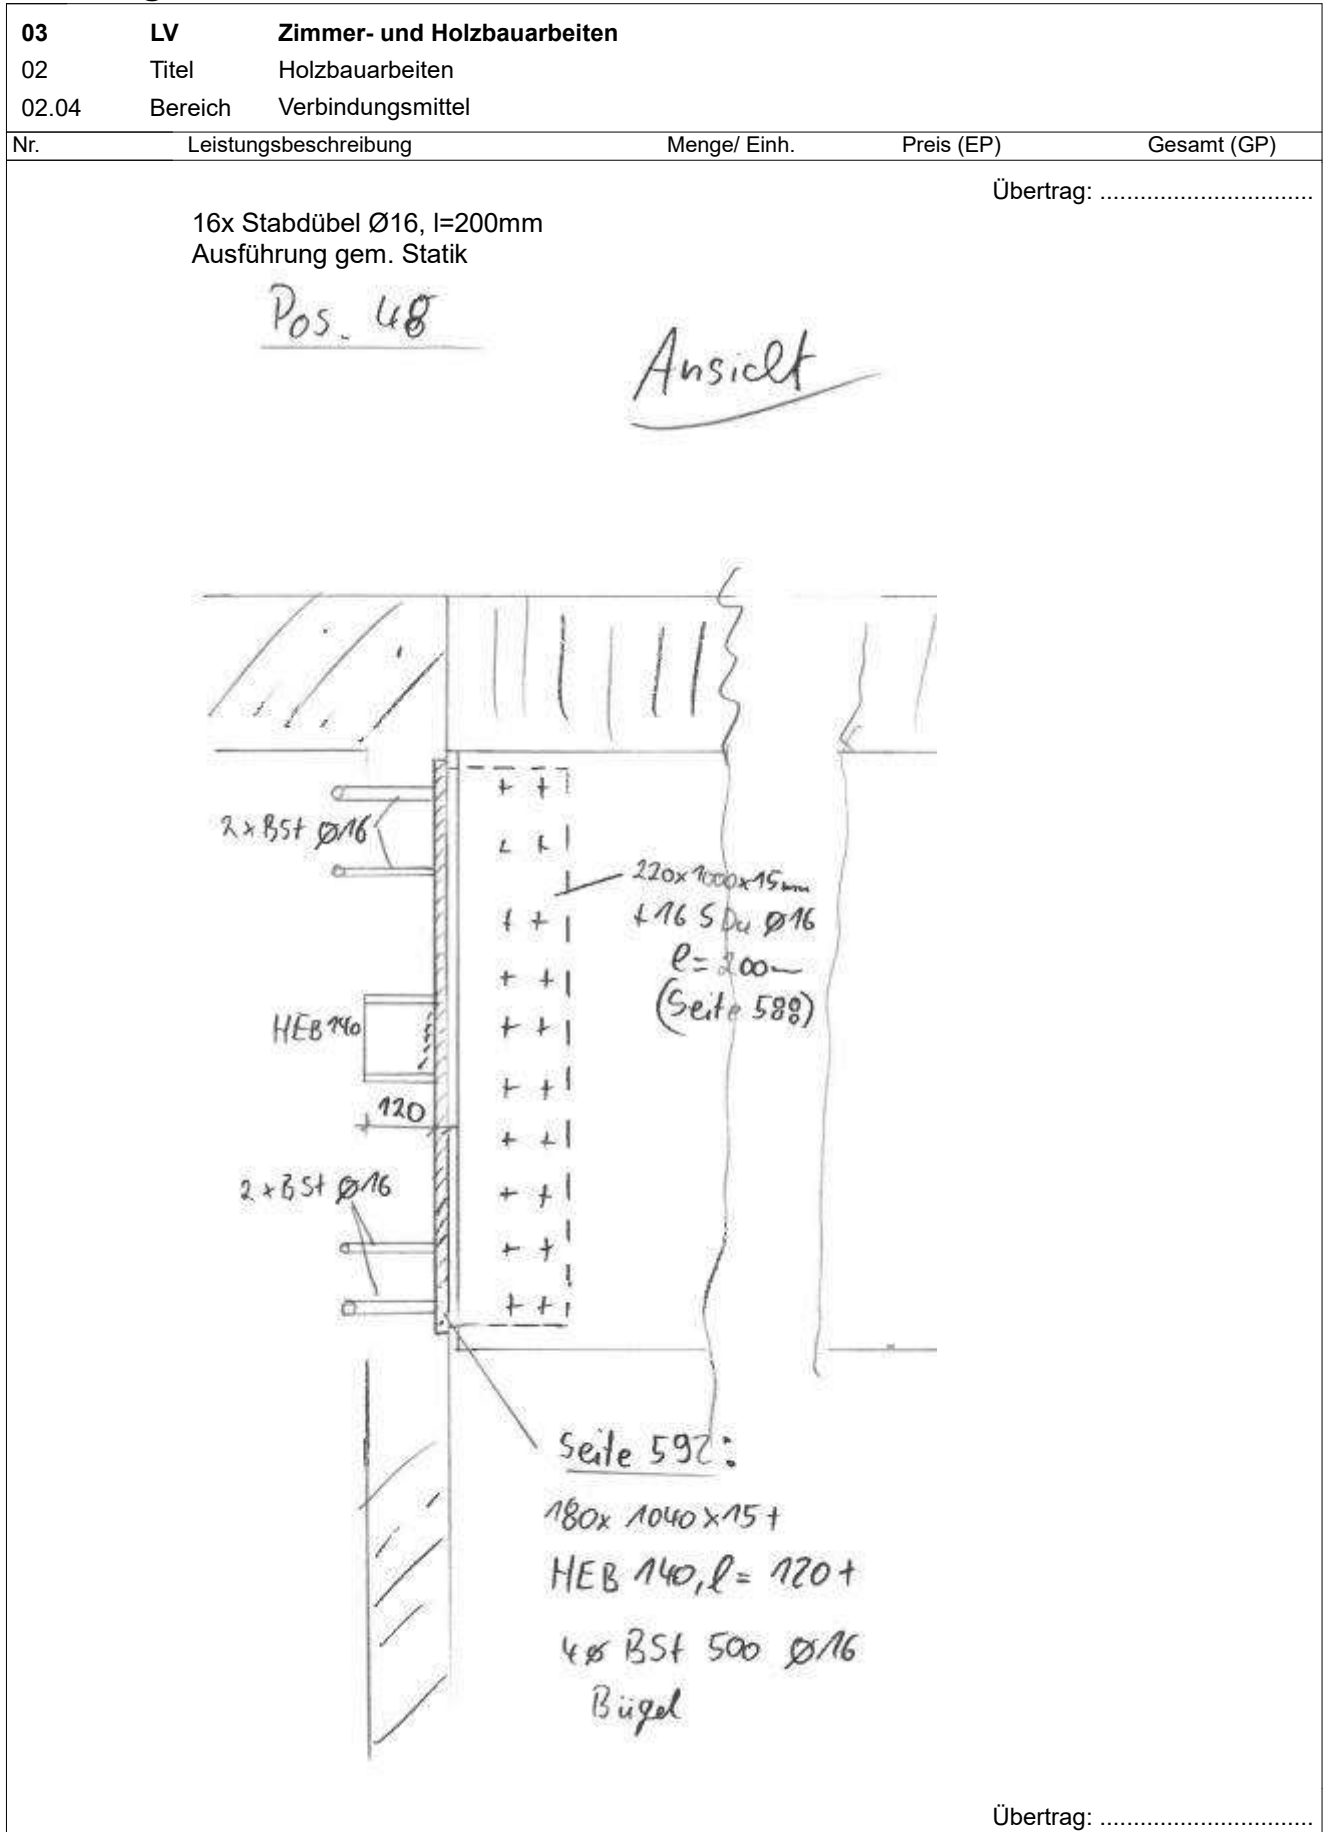 03 LV Zimmer- und Holzbauarbeiten
02 Titel Holzbauarbeiten
02.04 Bereich Verbindungsmittel
Nr. Leistungsbeschreibung Menge/ Einh. Preis (EP) Gesamt (GP)
Übertrag: ................................
16x Stabdübel Ø16, l=200mm
Ausführung gem. Statik
Pos. 48
Ansicht
2xBSt Ø16
220x1000x15mm
+16 SDü Ø16
l=200
(Seite 588)
HEB 140
120
2xBSt Ø16
Seite 592:
180x 1040x15+
HEB 140, l= 120+
4Ø BSt 500 Ø16
Bügel
Übertrag: ................................